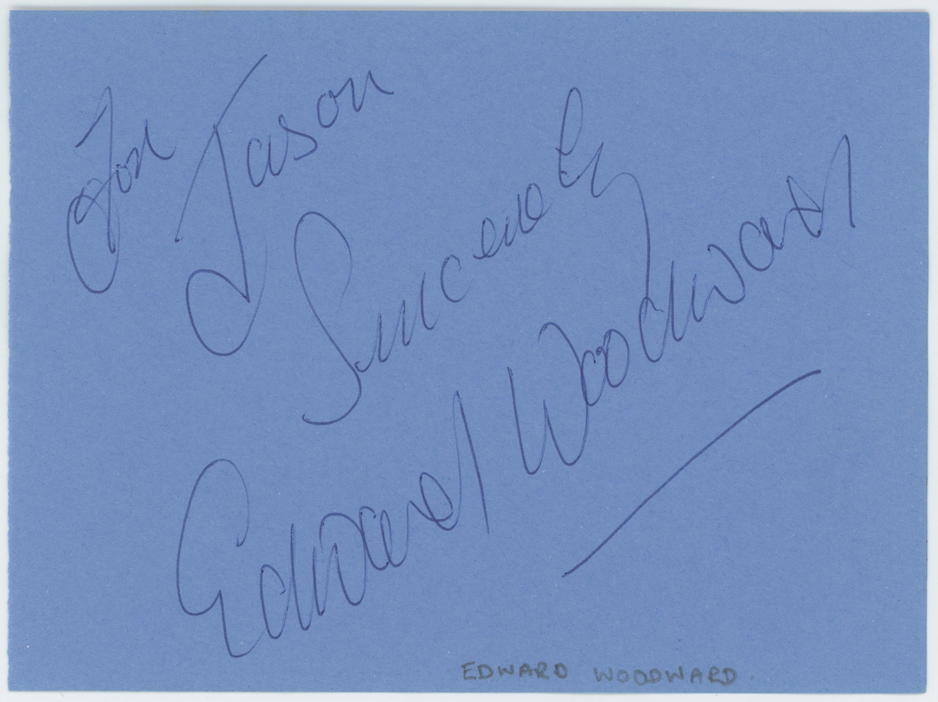 For Jason
Sincerely
Edward Woodward
EDWARD WOODWARD